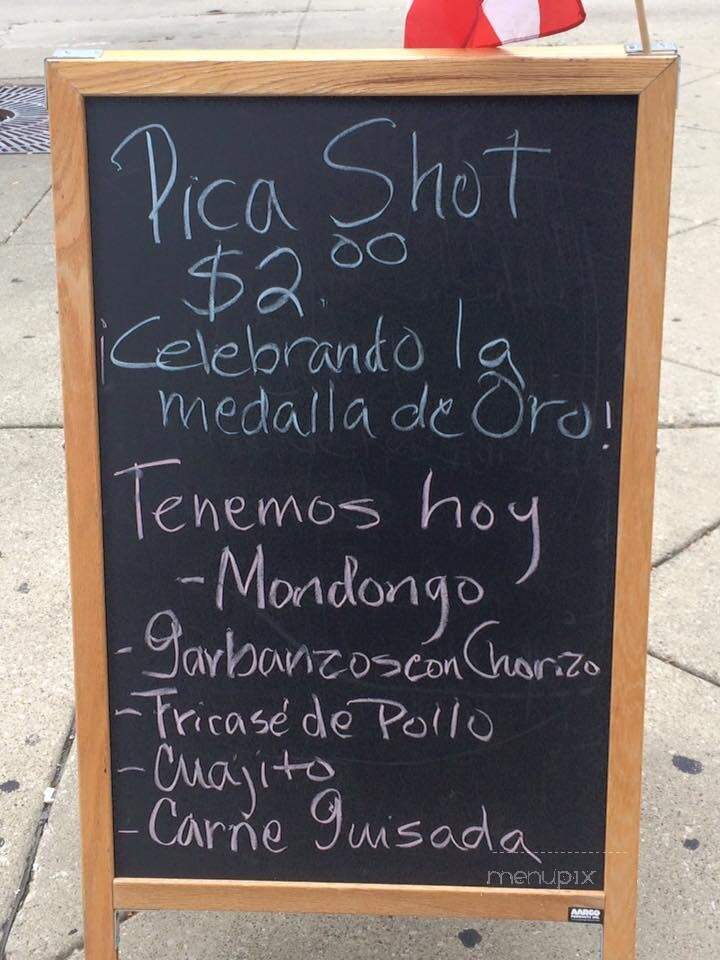 Pica Shot
$2.00
¡Celebrando la
medalla de Oro!
Tenemos hoy
- Mondongo
- garbanzos con Chorizo
- Fricasé de Pollo
- Cuajito
- Carne guisada
menupix
AARCO